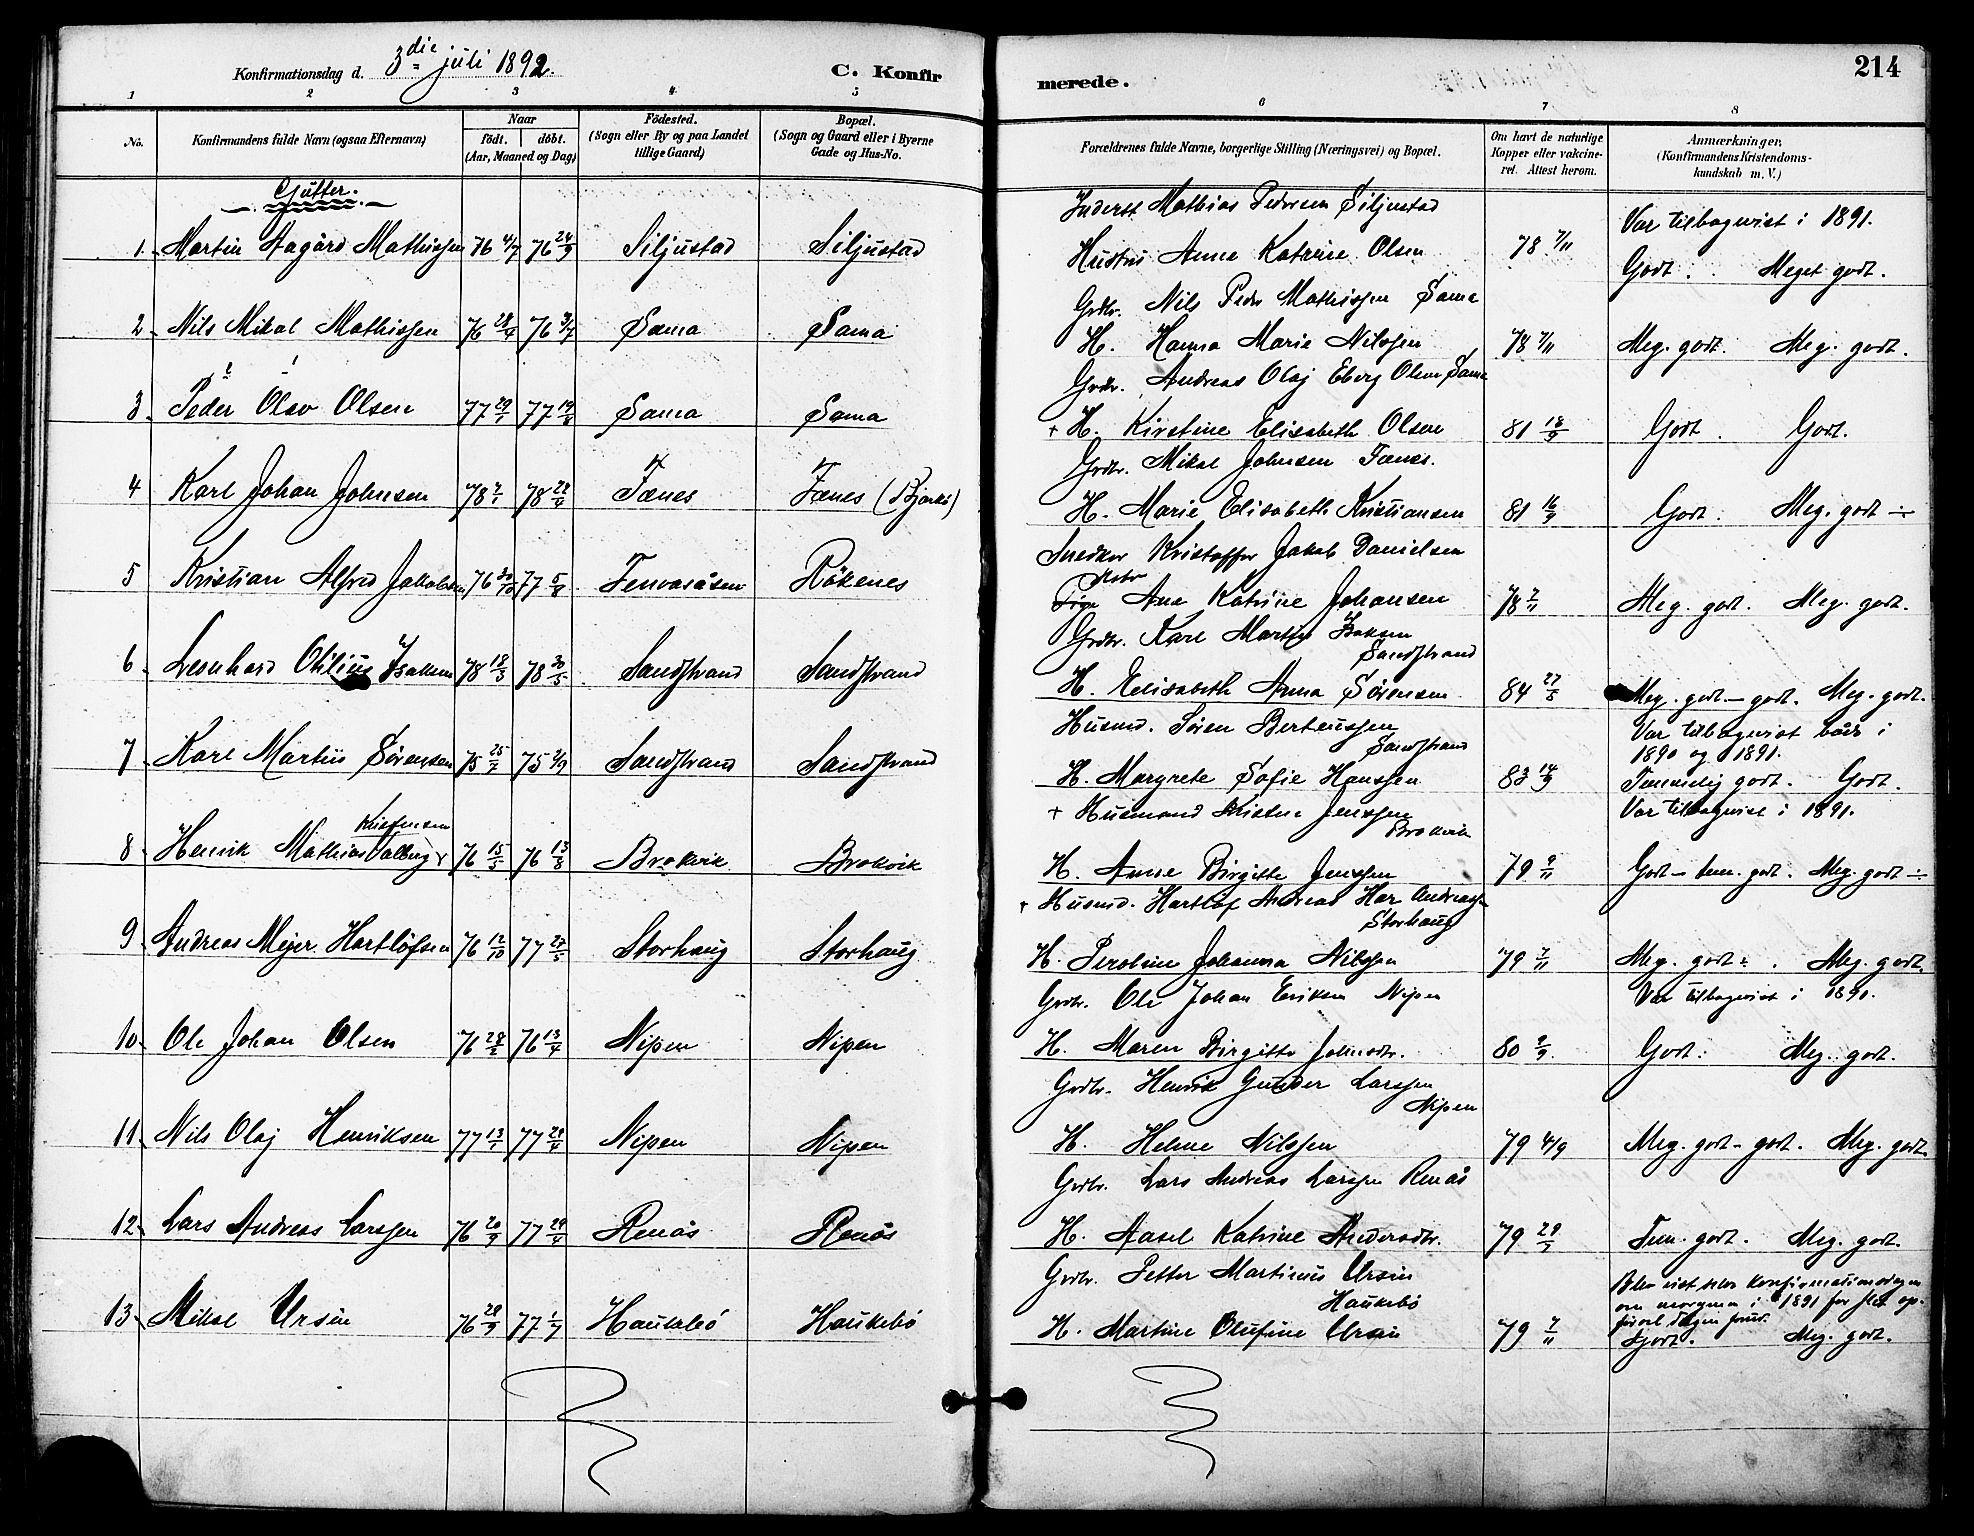 Konfirmationsdag d. 3die juli 1892.
C. Konfirmerede.
214
1 2 3 4 5 6 7 8
No.
Konfirmandens fulde Navn (ogsaa Efternavn)
Naar
födt. döbt.
(Aar, Maaned og Dag)
Födested.
(Sogn eller By og paa Landet
tillige Gaard)
Bopæl.
(Sogn og Gaard eller i Byerne
Gade og Hus-No.
Forældrenes fulde Navne, borgerlige Stilling (Næringsvei) og Bopæl.
Om havt de naturlige
Kopper eller vakcine-
ret. Attest herom.
Anmærkninger,
(Konfirmandens Kristendoms-
kundskab m. V.)
Gutter.
Inderst Mathias Pedersen Siljustad
Var tilbagevist i 1891.
1. Martin Aagård Mathissen 76 4/7 76 24/9 Siljustad Siljustad Hustru Anna Katrine Olsen 78 7/11 Godt. Meget godt.
Grdbr. Nils Peder Mathissen Sama
2. Nils Mikal Mathissen 76 28/4 76 3/7 Sama Sama H. Hanna Marie Nilssen 78 7/11 Meg. godt. Meg. godt.
Grdbr. Andreas Olaj Eberg Olsen Sama
3. Peder Olav Olsen 77 29/1 77 19/8 Sama Sama + H. Kirstine Elisabeth Olsen 81 18/9 Godt. Godt.
Grdbr. Mikal Johnsen Fænes.
4 Karl Johan Johnsen 78 2/1 78 22/4 Fænes Fænes (Bjarkö) H. Marie Elisabeth Kristiansen 81 16/9 Godt. Meg. godt ÷
Snedker Kristoffer Jakob Danielsen
5 Kristian Alfred Jakobsen 76 30/10 77 5/8 Tenvasåsen Rökenes Ane Katrine Johansen 78 7/11 Meg. godt. Meg. godt.
Grdbr. Karl Martin Isaksen
Sandstrand
6. Leonhard Othilius Isaksen 78 18/3 78 30/5 Sandstrand Sandstrand H. Elisabeth Anna Sörensen 84 27/8 Meg. godt - godt. Meg. godt.
Husmd. Sören Berteussen
Sandstrand
Var tilbagevist både i
1890 og 1891.
7. Karl Martin Sörensen 75 25/7 75 2/9 Sandstrand Sandstrand H. Margrete Sofie Hanssen 83 14/9 Temmelig godt. Godt.
+ Husmand Kristen Jenssen
Brokvik
Var tilbagevist i 1891.
Kristensen
8. Henrik Mathias Valberg 76 15/5 76 13/8 Brokvik Brokvik H. Anne Birgitte Jenssen 79 9/11 Godt - tem. godt. Meg. godt ÷
+ Husmd. Hartlöf Andreas Andreassen
Storhaug
9. Andreas Mejer Hartlöfsen 76 12/10 77 27/5 Storhaug Storhaug H. Peroline Johanna Nilssen 79 7/11 Meg. godt ÷. Meg. godt.
Grdbr. Ole Johan Eriksen Nipen
Var tilbagevist i 1891.
10. Ole Johan Olsen 76 28/2 76 13/4 Nipen Nipen H. Maren Birgitte Johnsdtr. 80 2/9 Godt. Meg. godt.
Grdbr. Henrik Gunder Larssen
Nipen
11. Nils Olaj Henriksen 77 13/1 77 29/4 Nipen Nipen H. Helene Nilssen 79 4/9 Meg. godt - godt. Meg. godt.
Grdbr. Lars Andreas Larssen Renås
12. Lars Andreas Larssen 76 20/9 77 29/4 Renås Renås H. Aasel Katrine Andersdtr. 79 29/7 Tem. godt. Meg. godt.
Grdbr. Petter Martinus Ursin
Haukebö
Blev vist konfirmationsdagen
om morgenen i 1891 for slet op-
försel dagen forud.
13. Mikal Ursin 76 29/9 77 1/7 Haukebö Haukebö H. Martine Olufine Ursin 79 7/11 Godt. Meg. godt.